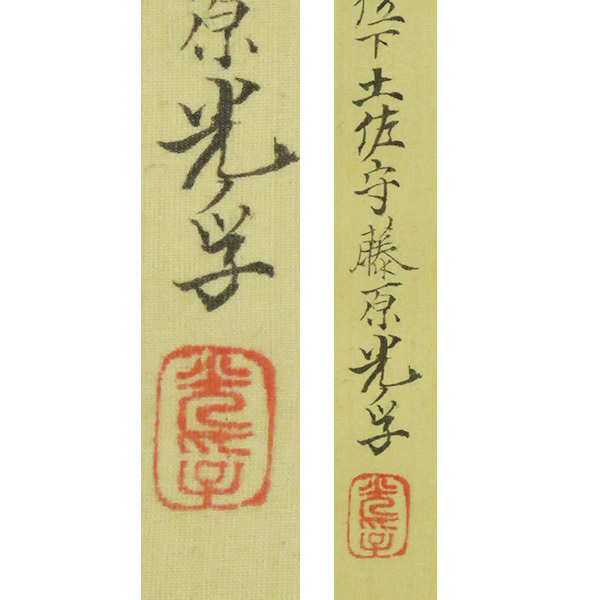 原光孚
光孚
位下土佐守藤原光孚
光孚